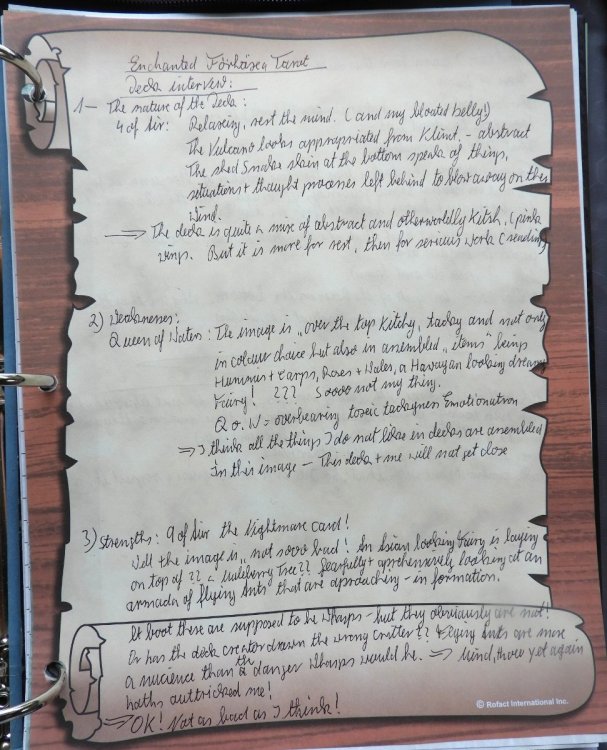 Enchanted Förhäxa Tarot
Deck interview:
1- The nature of the deck:
4 of Air: Relaxing, rest the mind. (and my bloated belly!)
The Vulcano looks appropriated from Klimt, - abstract
The shed Snake skin at the bottom speaks of things,
situations + thought processes left behind to blow away on the
wind.
→ The deck is quite a mix of abstract and otherworldly Kitsh, (pink
wings. But it is more for rest, then for serious work (reading)
2) Weaknesses:
Queen of Water: The image is "over the top Kitchy, tacky and" not only
in colour choice but also in assembled "items" being
Hummus + Carps, Roses + Water, a Hawayan looking dreamy
Fairy! ??? Soooo not my thing.
Q o. W = overbearing toxic tackyness
⇒ I think all the things I do not like in decks are assembled
in this image – This deck + me will not get close
3) Strengths: 9 of Air the Nightmare card!
Well the image is "not sooo bad! An Asian looking Fairy is laying
on top of ?? a Mulberry Tree?? fearfully + apprehensively looking at an
armada of flying Ants that are aproaching – in formation.
It boot these are supposed to be Whasps – but they obviously are not!
Or has the deck creator drawn the wrong critter?? Flying Ants are more
a nucience than the danger Whasps would be. ⇒ Mind, thou yet again
haths outtricked me!
⇒ OK! Not as bad as I think!
© Rofact International Inc.